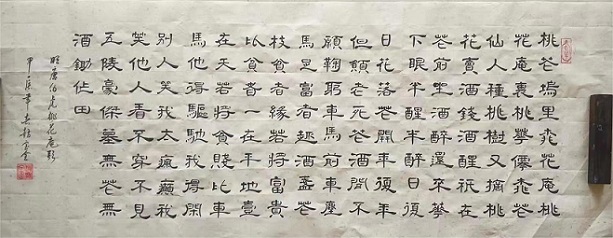 桃花塢里桃花庵桃
花庵裏桃花僊桃花
仙人種桃樹又摘桃
花賣酒錢酒醒祇在
花前坐酒醉還來花
下眠半醒半醉日復
日花落花開年復年
但願老死花酒間不
願鞠躬車馬前車塵
馬足富者趣酒盞花
枝貧者緣若將富貴
比貧者一在平地壹
在天若將貧賤比車
馬他得驅馳我得閑
別人笑我太瘋癲我
笑他人看不穿不見
五陵豪傑墓無花無
酒鋤作田
明唐伯虎桃花庵歌
甲辰年春